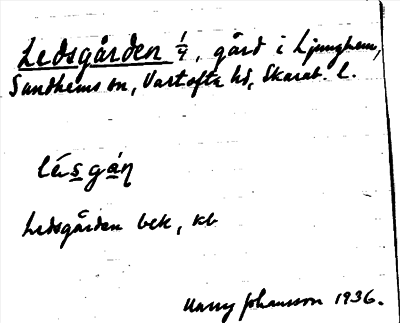 Ledsgården 1/4, gård i Ljunghem,
Sandhems sn, Vartofta hd, Skarab. l.
lésgáṇ
Ledsgården bek, kb
Harry Johansson 1936.